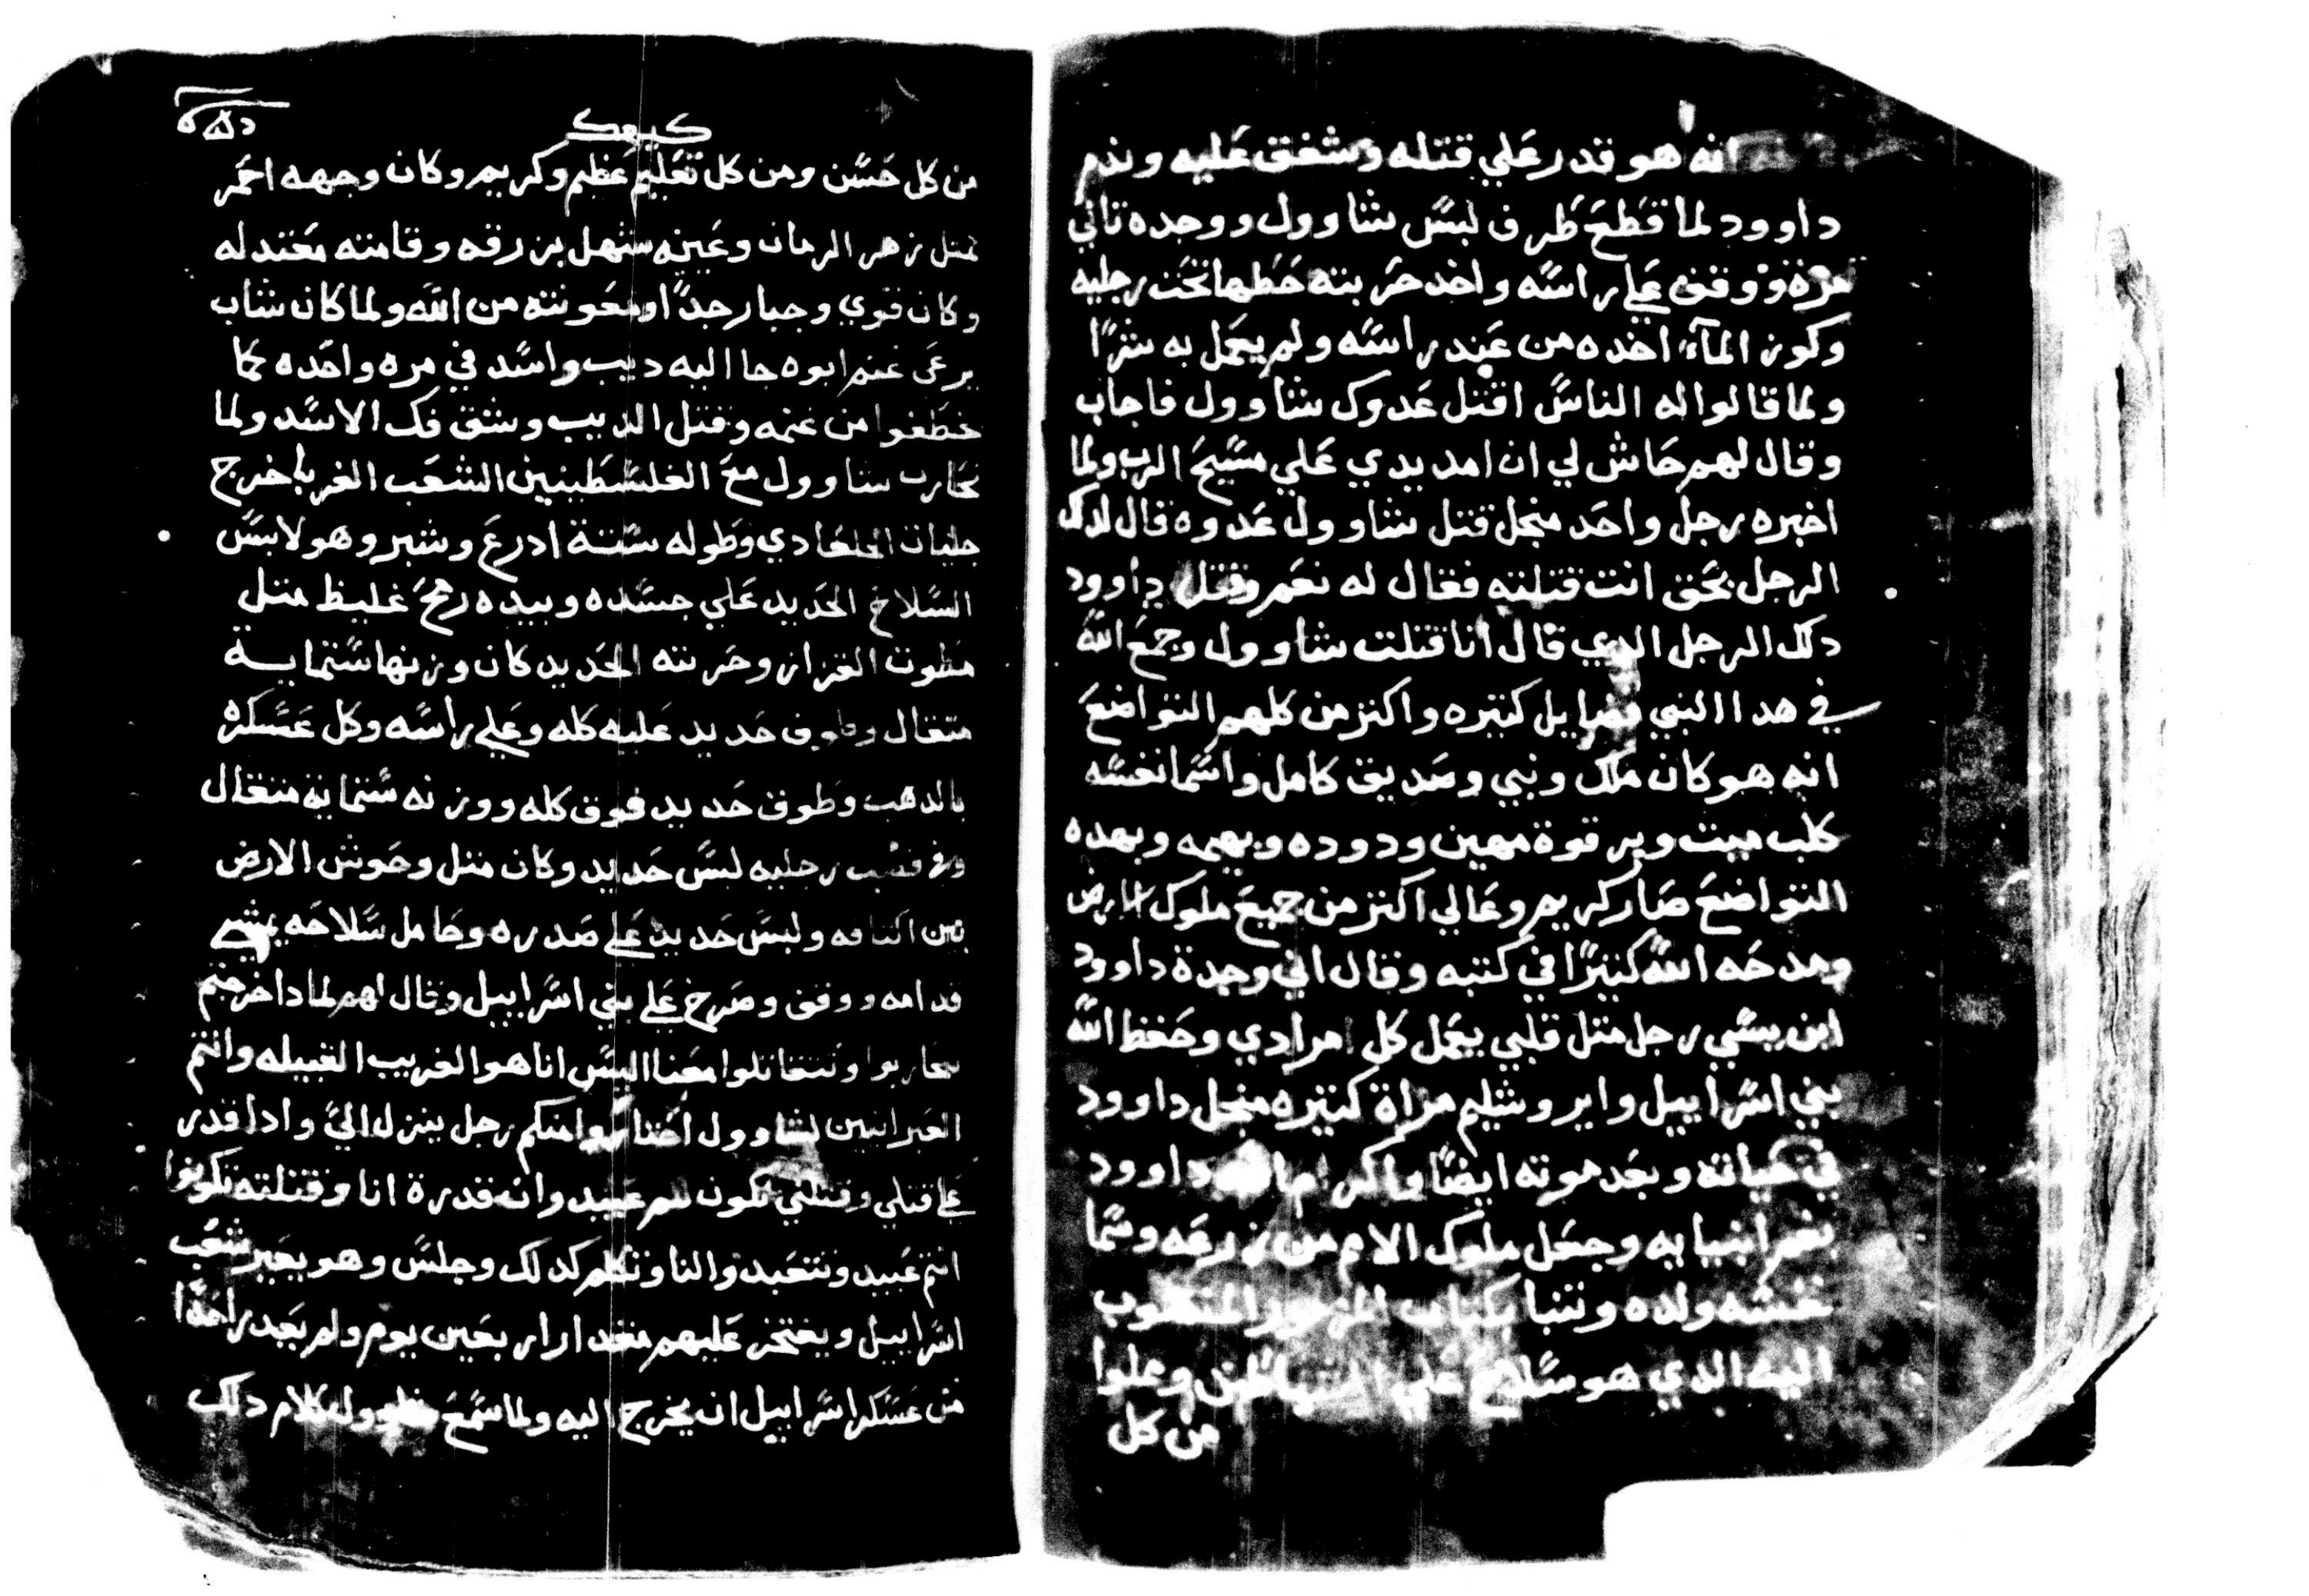 انه هو قدر علي قتله وشفق عليه وندم
داوود لما قطع طرف لبس شاوول ووجده تاني
مرة ووقف علي راسه واخد حربته حطها تحت رجليه
وكوز المآء اخده من عند راسه ولم يعمل به شرًا
ولما قالوا له الناس اقتل عدوك شاوول فاجاب
وقال لهم حاش لي ان امد يدي علي مسيح الرب ولما
اخبره رجل واحد منجل قتل شاوول عدوه قال لدلك
الرجل بحق انت قتلته فقال له نعم وقتل داوود
دلك الرجل الدي قال انا قتلت شاوول وجمع الله
في هدا النبي فضايل كتيره واكتر من كلهم التواضع
انه هو كان ملك ونبي وصديق كامل واسما نفسه
كلب ميت وير قوة مهين ودوده وبهيمه وبهده
التواضع صار كريم وعالي اكتر من جميع ملوك الارض
ومدحه الله كتيرًا في كتبه وقال اني وجدة داوود
ابن يسي رجل متل قلبي يعمل كل امرادي وحفظ الله
بني اسراييل وايروشليم مراة كتيره منجل داوود
في حياته وبعد موته ايضًا واكرم داوود
بنعم انبيايه وجعل ملوك الامم من زرعه وسما
نفسه ولده وتنبا بكتاب المزمور المكتوب
اليه الدي هو سلاح علي الشياطين ومملوا
من كل
كيهك
من كل حسن ومن كل تعليم عظيم وكريم وكان وجهه احمر
متل زهر الرمان وعينه سهل بزرقه وقامته معتدله
وكان قوي وجبار جدًا ومعونته من الله ولما كان شاب
يرعي غنم ابوه جا اليه ديب واسد في مره واحده كما
خطفوا من غنمه وقتل الديب وشق فك الاسد ولما
تحارب شاوول مع الفلسطينيين الشعب الغربا خرج
جليات الجلعادي وطوله ستة ادرع وشبر وهو لابس
السلاح الحديد علي جسده وبيده رمح غليظ متل
مطوت القزاز وحربته الحديد كان وزنها ستماية
متقال وطوف حديد عليه كله وعلي راسه وكل عسكره
بالدهب وطوق حديد فوق كله ووزنه ستماية متقال
وفي قصب رجليه لبس حديد وكان متل وحوش الارض
بين اكتافه ولبس حديد علي صدره وحامل سلاحه يمشي
قدامه ووقف وصرخ علي بني اسراييل وقال لهم لمادا خرجتم
تحاربوا وتتقاتلوا معنا اليس انا هو الغريب القبيله وانتم
العبرانيين لشاوول اختاروا منكم رجل ينزل اليّ وادا قدر
علي قتلي وقتلني نكون لكم عبيد وان قدرة انا وقتلته تكونوا
انتم عبيد وتتعبدوا لنا وتكلم كدلك وجلس وهو يعير شعب
اسراييل ويفتخر عليهم مقدار اربعين يوم ولم يقدر احدًا
من عسكر اسراييل انه يخرج اليه ولما سمع شاوول كلام دلك